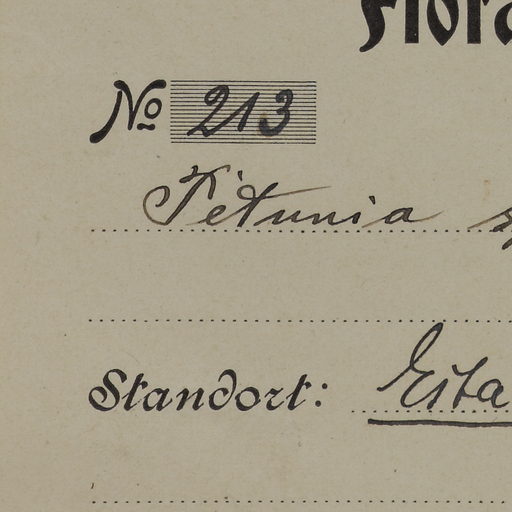 Flora
No 213
Petunia
Standort: Esta